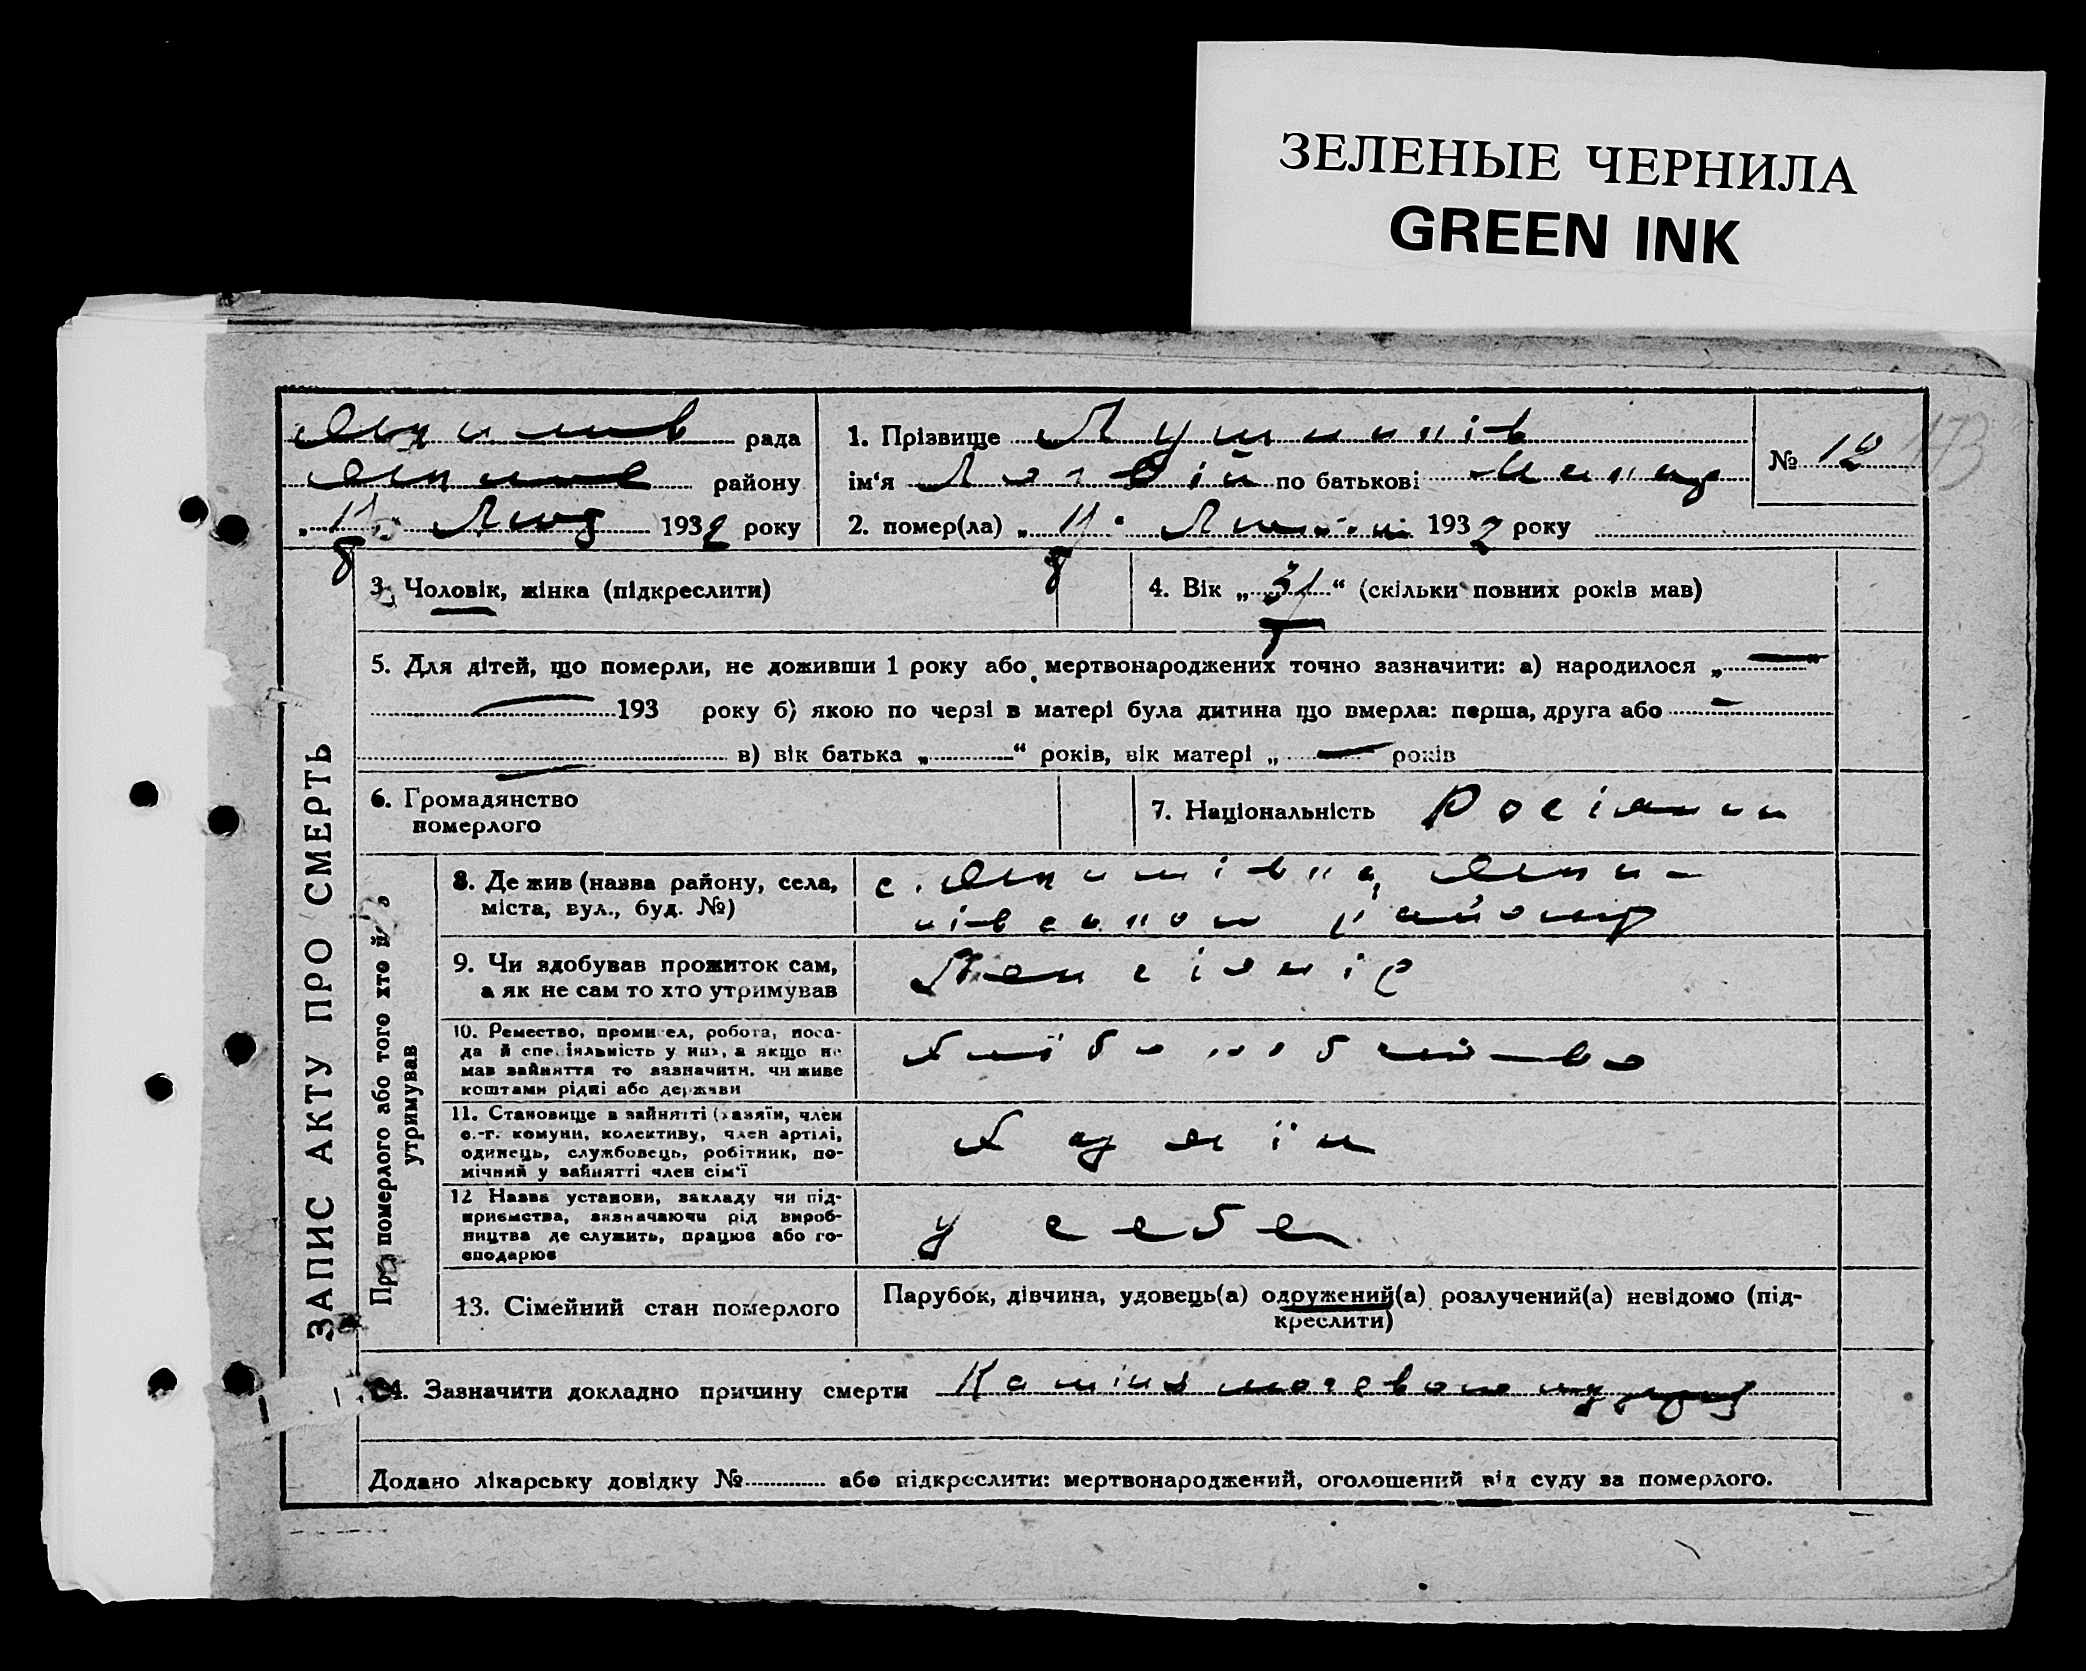 ЗЕЛЕНЫЕ ЧЕРНИЛА
GREEN INK
рада
району
„11“ 1932 року
1. Прізвище
ім‘я по батькові
2. помер(ла) „11“ 1932 року
№ 12
173
8
8
3. Чоловік, жінка (підкреслити)
4. Вік „31“ (скільки повних років мав)
5. Для дітей, що померли, не доживши 1 року або мертвонароджених точно зазначити: а) народилося „ “
193 року б) якою по черзі в матері була дитина що вмерла: перша, друга або
в) вік батька „ “ років, вік матері „ років
6. Громадянство
померлого
7. Національність Росіянин
ЗАПИС АКТУ ПРО СМЕРТЬ
Про померлого або того хто й
утримував
8. Де жив (назва району, села,
міста, вул., буд. №)
с.
району
9. Чи здобував прожиток сам,
а як не сам то хто утримував
10. Ремество, промисел, робота, поса-
да й спеціяльність у них, а якщо не
мав зайняття то зазначити, чи живе
коштами рідні або держави
Хліборобство
11. Становище в зайнятті (хазяїн, член
с.-г. комуни, колективу, член артілі,
одинець, службовець, робітник, по-
мічний у зайнятті член сім‘ї
Хазяїн
12 Назва установи, закладу чи під-
приємства, зазначаючи рід вироб-
ництва де служить, працює або го-
сподарює
у себе
13. Сімейний стан померлого
Парубок, дівчина, удовець(а) одружений(а) розлучений(а) невідомо (під-
креслити)
14. Зазначити докладно причину смерти Каміння мочевого
Додано лікарську довідку № або підкреслити: мертвонароджений, оголошений від суду за померлого.